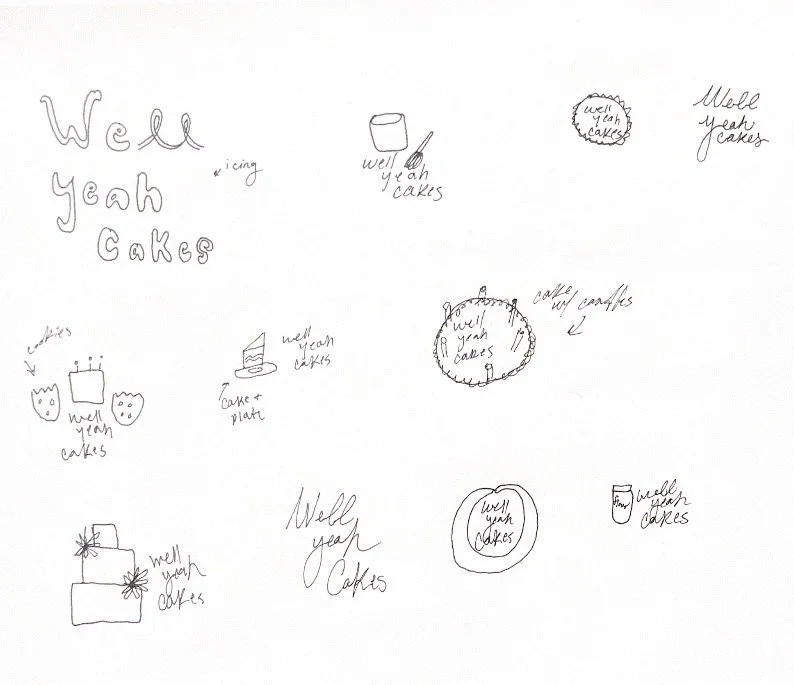 Well
yeah
Cakes
icing
well
yeah
cakes
well
yeah
cakes
Well
yeah
cakes
cookies
well
yeah
cakes
well
yeah
cakes
cake +
plate
well
yeah
cakes
cake
w/ candles
well
yeah
cakes
Well
yeah
Cakes
well
yeah
cakes
well
yeah
cakes